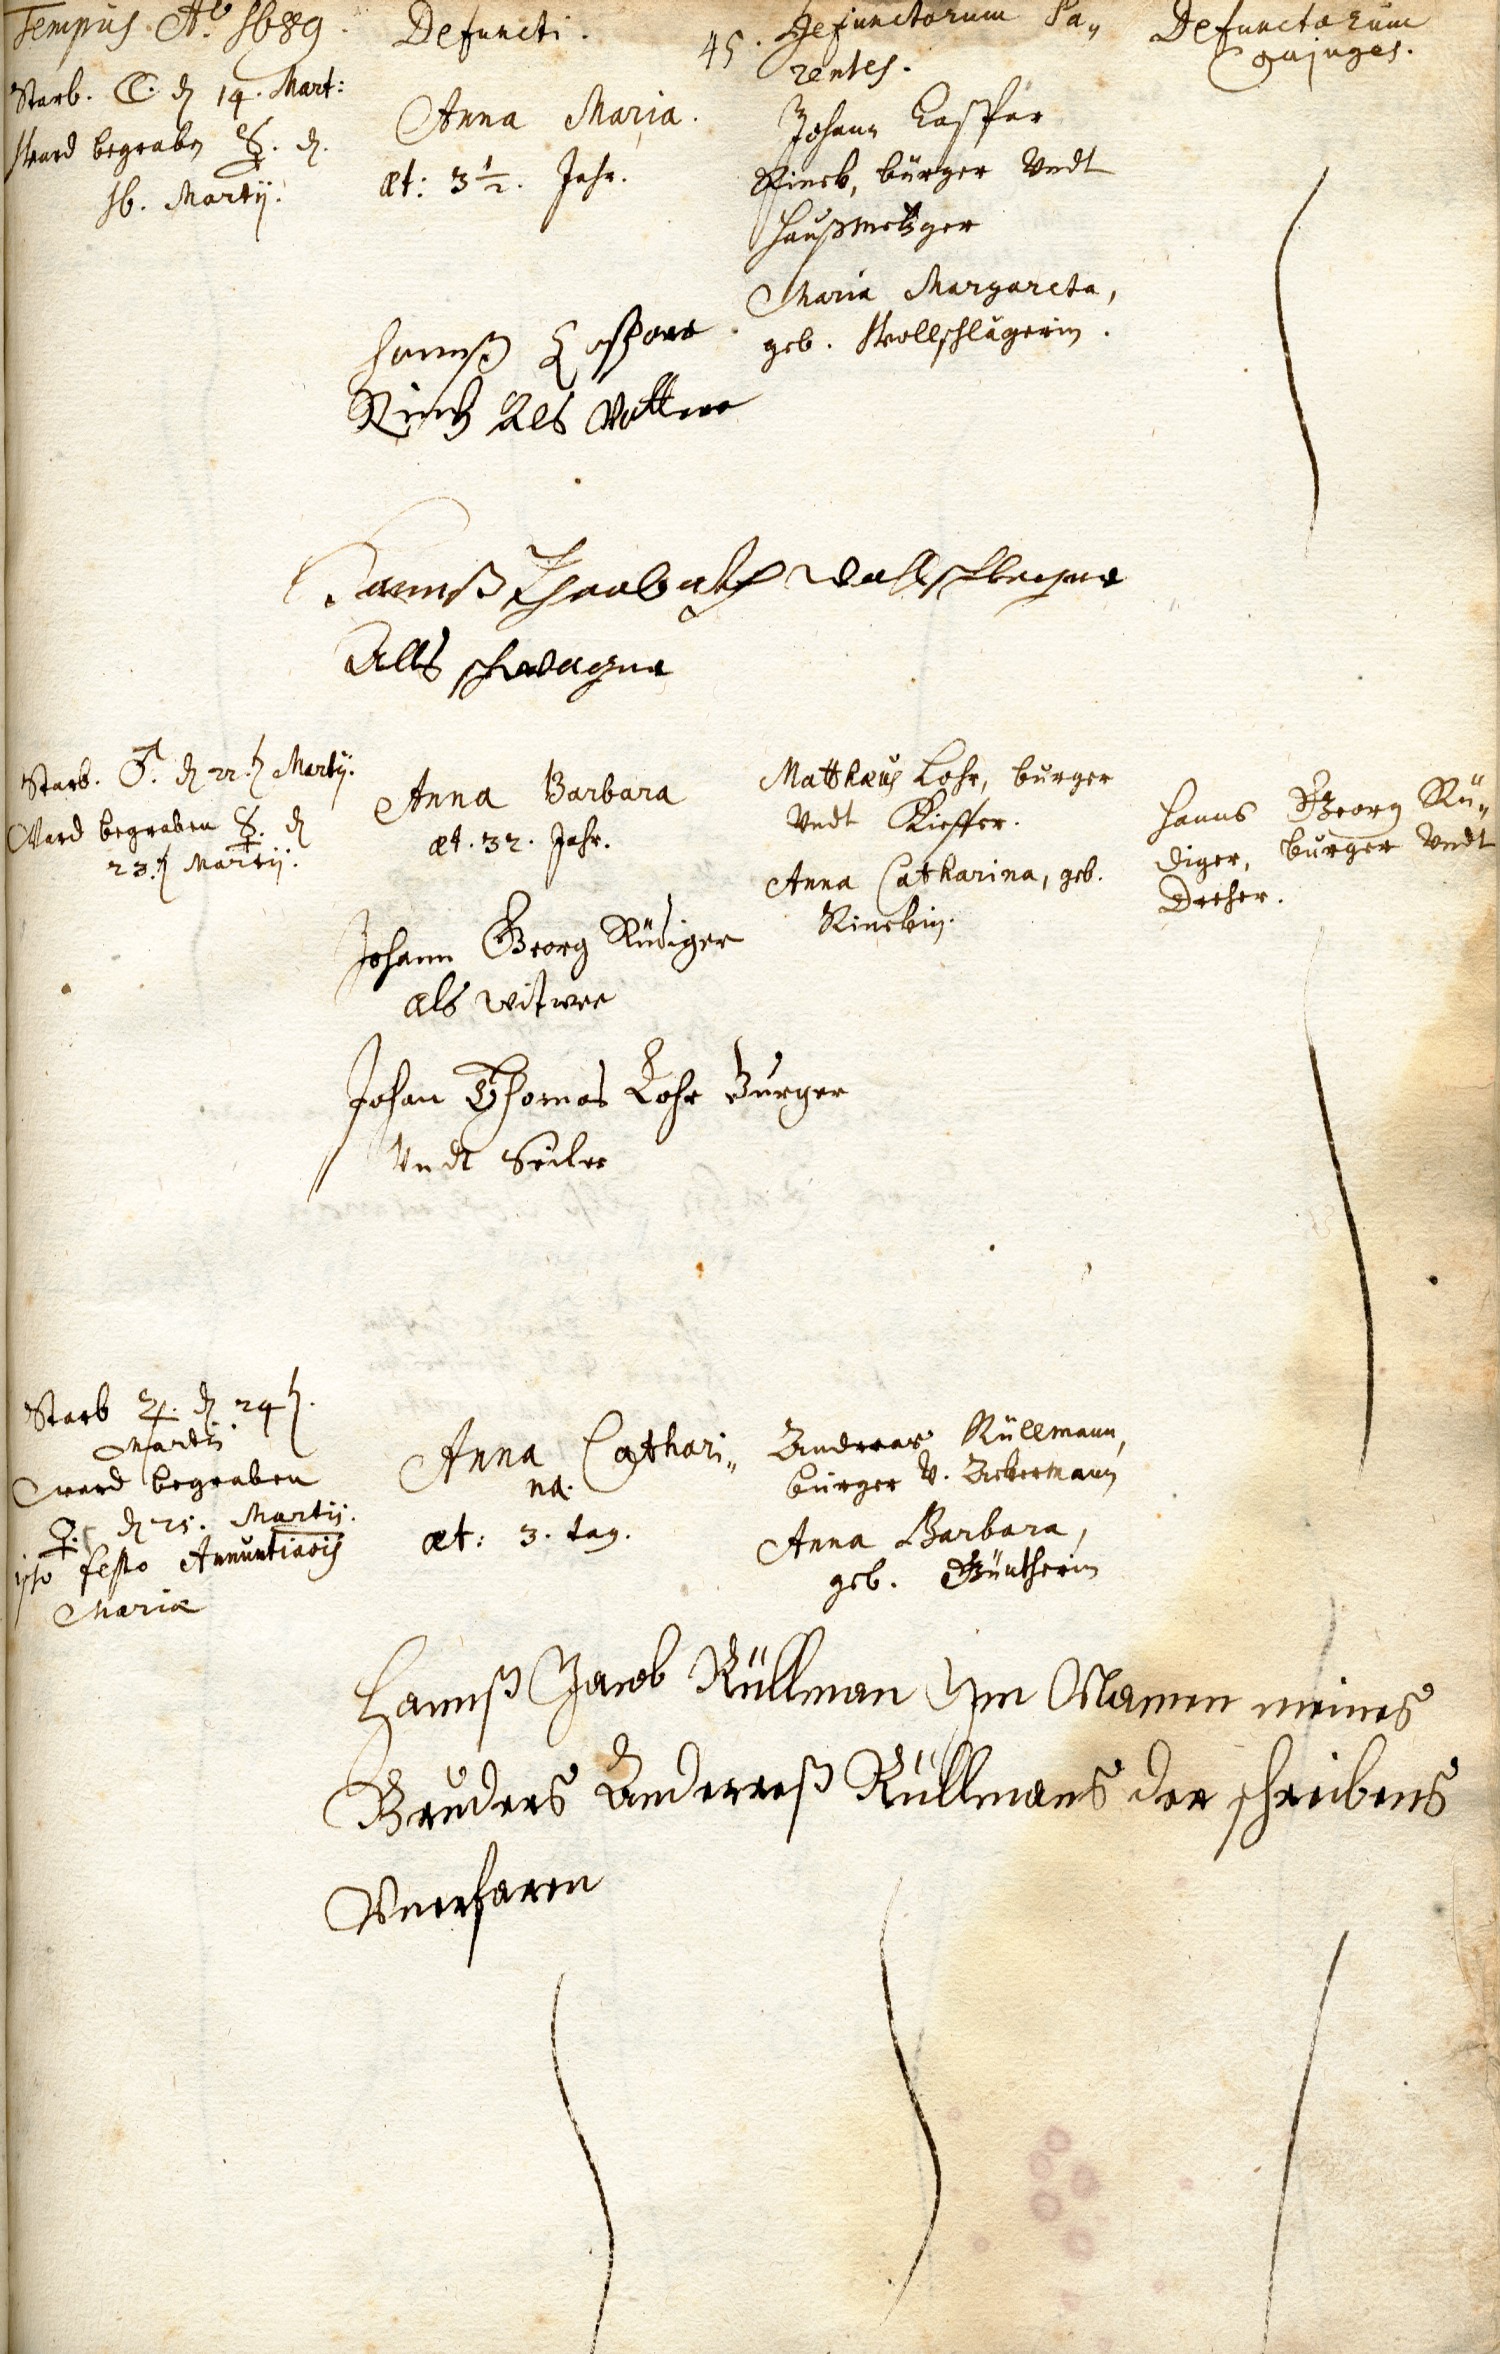 Tempus. Aō. 1689.
Defuncti.
45.
Defunctorum Pa„
rentes.
Defunctorum
Conjuges.
Starb. ☾. dn 14. Mart:
Ward begraben ☿. dn.
16. Martij.
Anna Maria.
æt: 3½. Jahr.
Johann Caspar
Rinck, bürger Vndt
Haußmetzger
Maria Margareta,
geb. Wollschlägerin.
Hannß Caspar
Rinck Als Vatter
Hannß Wollschleger
Alls schwager
Starb. ♂. dn 22. Martij.
Ward begraben ☿. dn
23. Martij.
Anna Barbara
æt. 32. Jahr.
Matthæus Lohr, burger
Vndt Kieffer.
Anna Catharina, geb.
Rinckin.
Hanns Georg Rü„
diger, burger Vndt
Dreher.
Johann Georg Rüdiger
als witwer
Johan Thomas Lohr Burger
Vndt Seiler
Starb ♃. dn 24
Martij
ward begraben
♀. dn 25. Martij.
ipso festo Annuntiaõis
Mariæ
Anna Cathari„
na.
æt: 3. tag.
Andreas Rüllmann,
bürger V. Ackermann
Anna Barbara,
geb. Güntherin
Hannß Jacob Rüllman Im Namen meines
Bruders Anderreß Rüllmans der schreibens
Vnerfaren